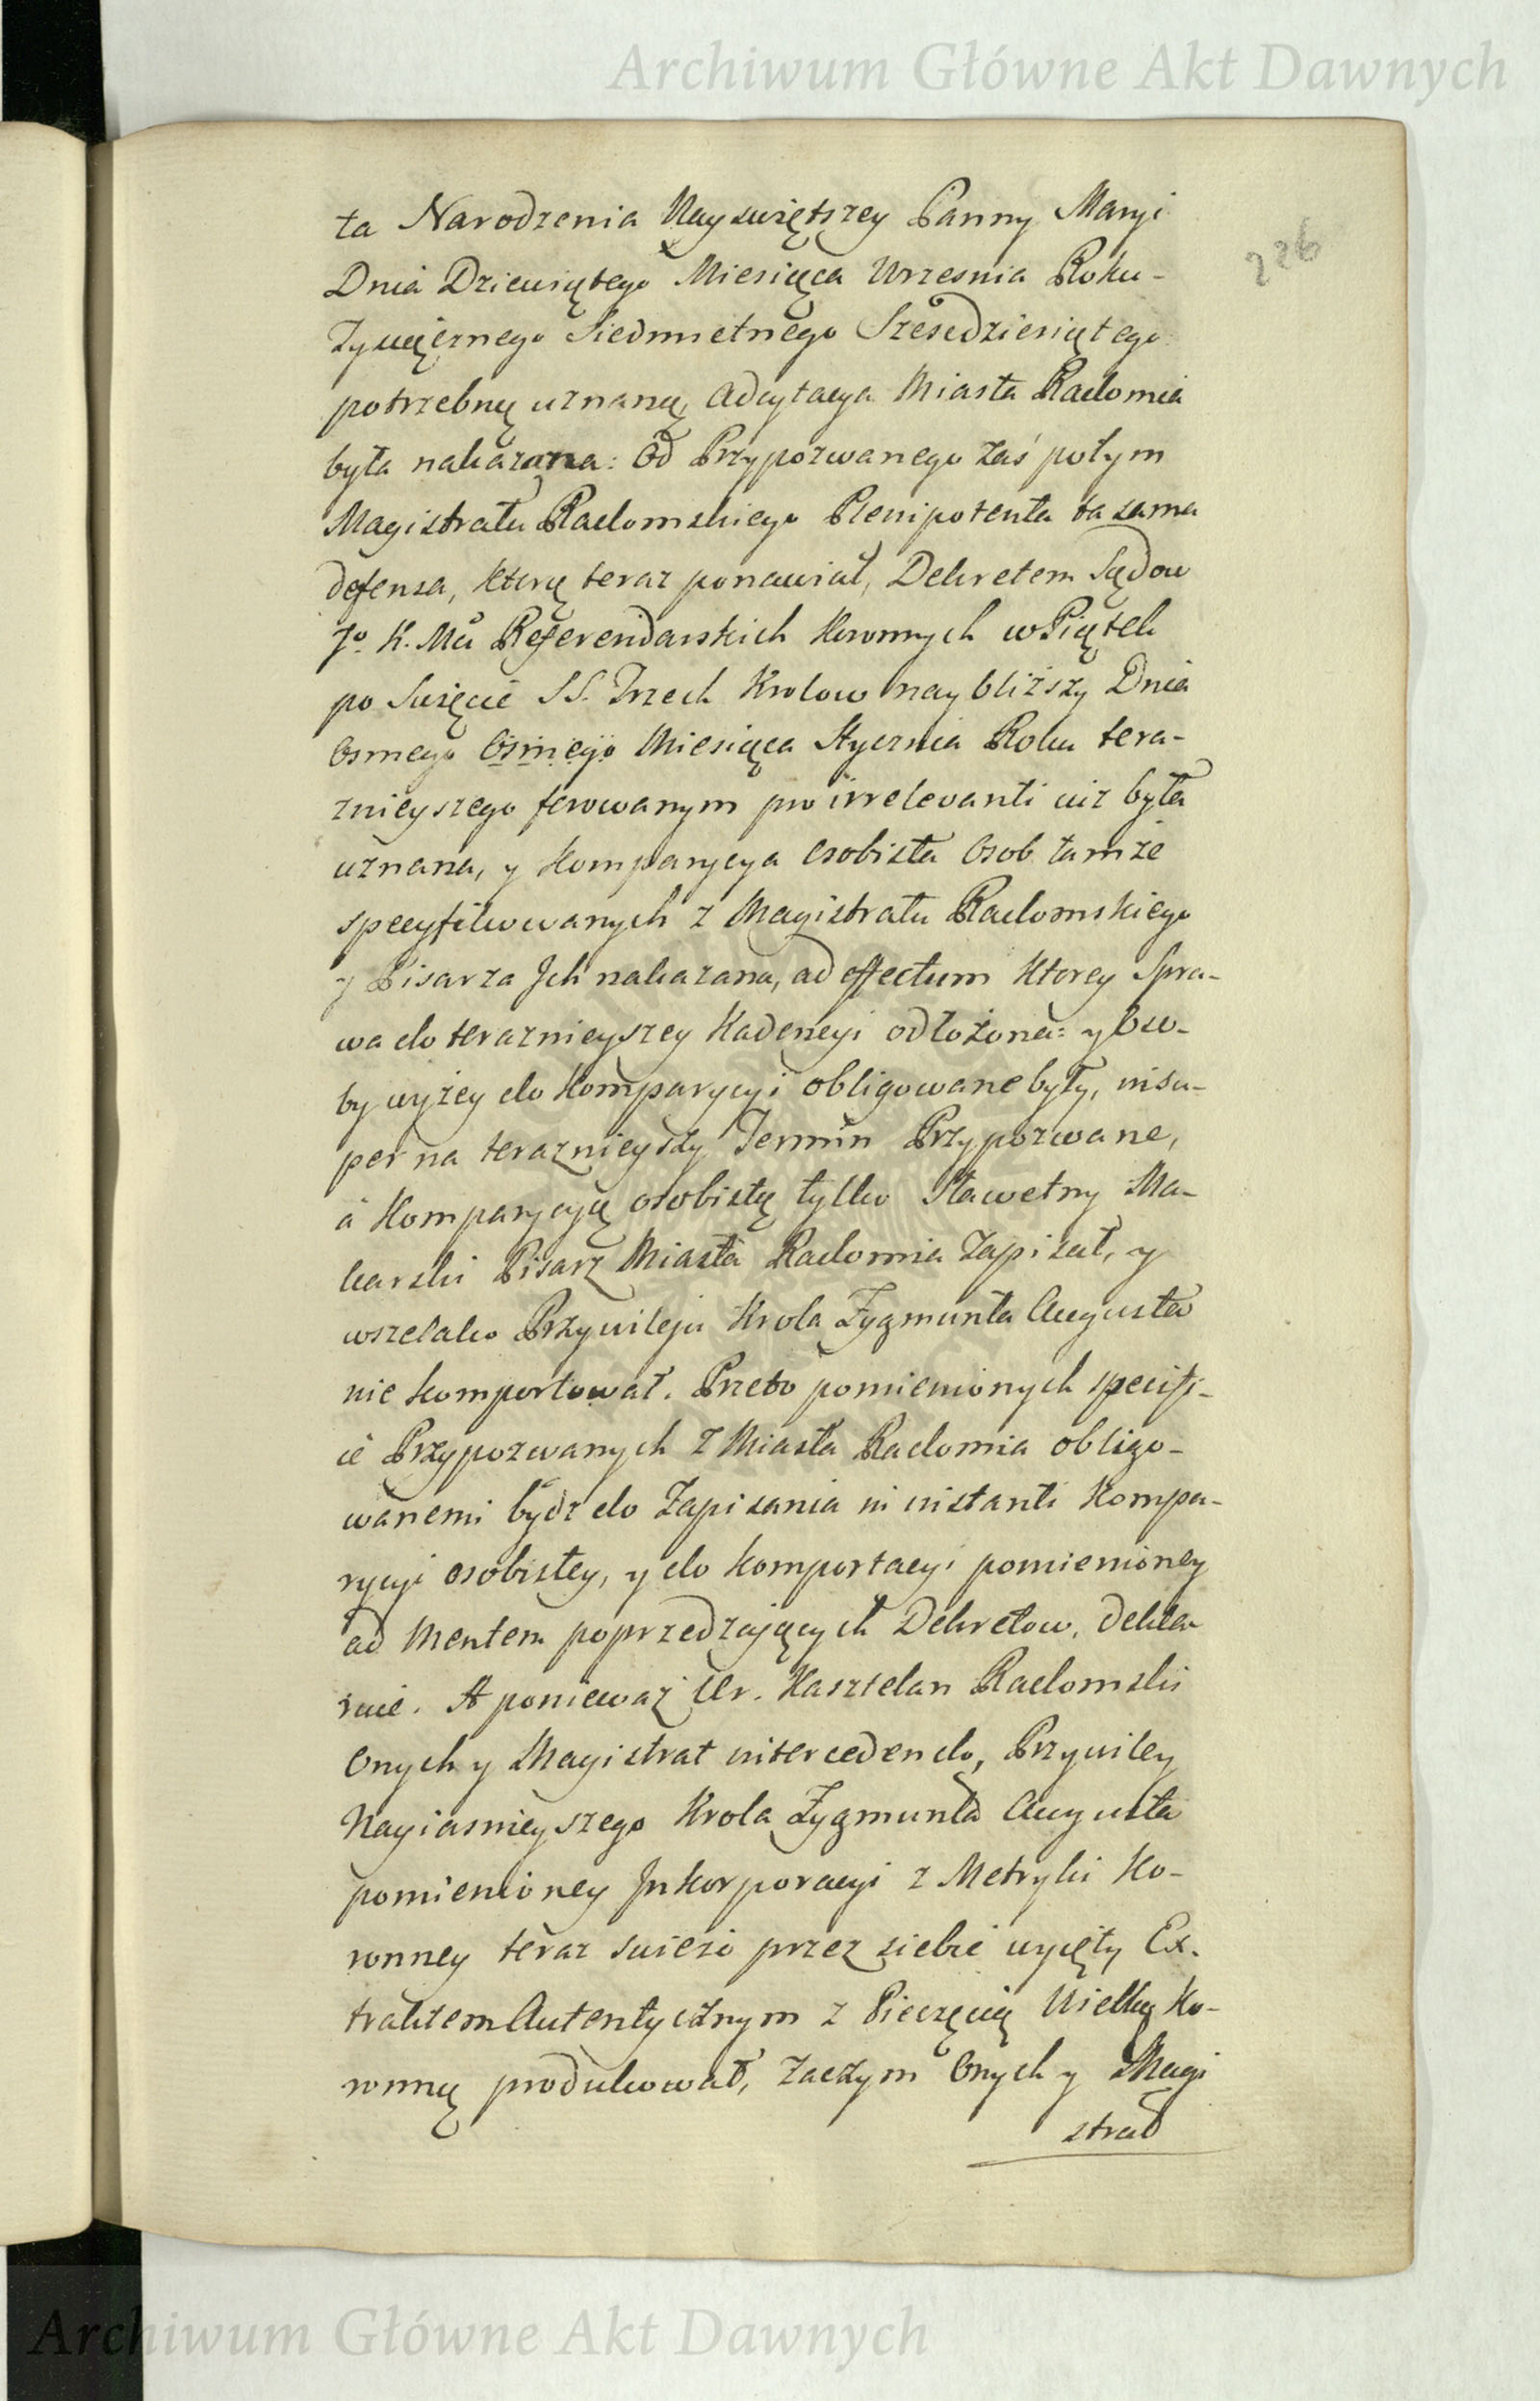 Archiwum Główne Akt Dawnych
226
ta Narodzenia Nayswiętszey Panny Maryi
Dnia Dziewiątego Miesiąca Wrzesnia Roku-
Tysiącznego Siedmsetnego Szescdziesiątego
potrzebną uznaną, Adcytacya Miasta Radomia
była nakazana: Od Przypozwanego zaś potym
Magistratu Radomskiego Plenipotenta ta sama
defensa, którą teraz ponawiał, Dekretem Sądow
Jo. K. Mci Referendarskich Koronnych w Piątek
po Swięcie SS. Trzech Krolow naybliższy Dnia
Osmego Osmego Miesiąca Stycznia Roku tera-
znieyszego ferowanym pro irrelevanti iuż była
uznana, y Komparycya osobista Osob tamże
specyfikowanych z Magistratu Radomskiego
y Pisarza Ich nakazana, ad effectum ktorey Spra-
wa do teraznieyszey Kadencyi odłożona: y Oso-
by wyżey do Komparycyi obligowane były, insu-
per na teraznieyszy Termin Przypozwane,
á Komparycyą osobistą tylko Sławetny Ma-
karski Pisarz Miasta Radomia zapisał, y
wszelako Przywileju Krola Zygmunta Augusta
nie komportował. Przeto pomienionych specifi-
cè Przypozwanych z Miasta Radomia obligo-
wanemi bydz do Zapisania in instanti Kompa-
rycyi osobistey, y do komportacyi pomienioney
ad mentem poprzedzaiących Dekretow, dekla
ruie. A ponieważ Ur. Kasztelan Radomski
Onych y Magistrat intercedendo, Przywiley
Nayiasnieyszego Krola Zygmunta Augusta
pomienioney Inkorporacyi z Metryki Ko-
ronney teraz swieżo przez siebie wyięty Ex-
traktem Autentycznym z Pieczęcią Wielką Ko-
ronną produkował, zaczym Onych y Magi
strat
Archiwum Główne Akt Dawnych